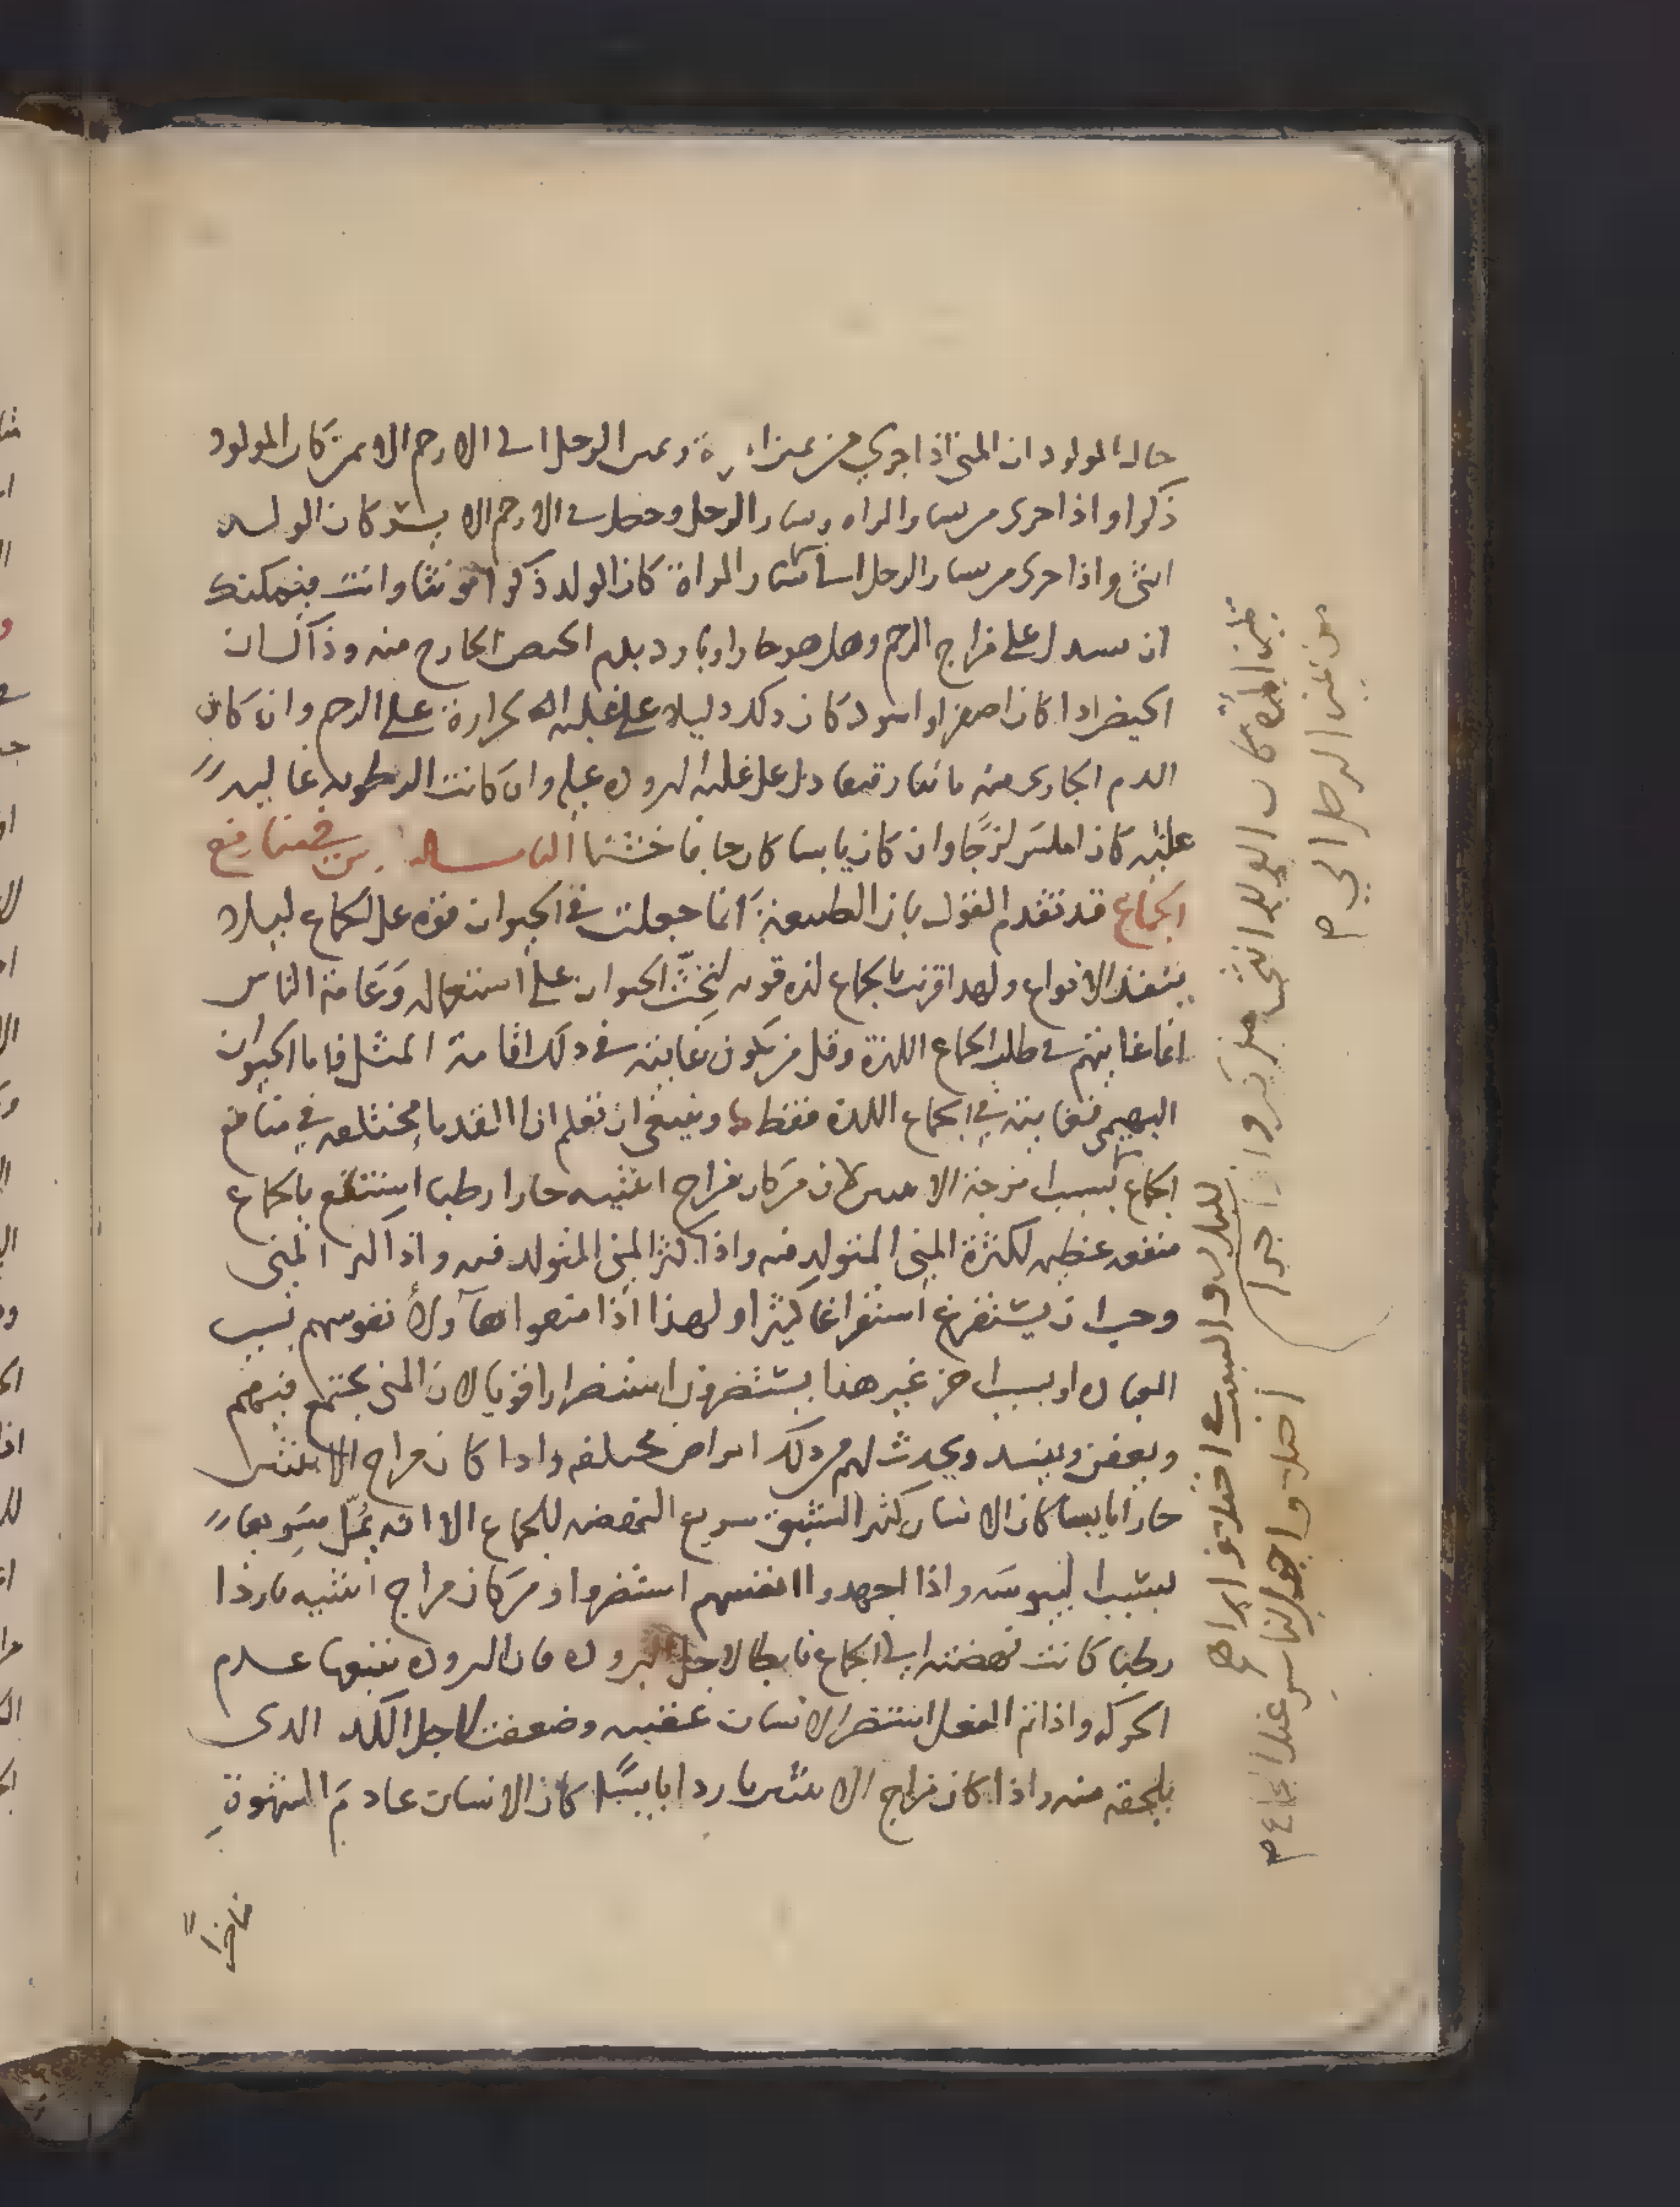 حال المولود ان المني اذا جري من يمين المراة ويمين الرجل الى الارحم الايمن كان المولود
ذكرا واذا جرى من يسار المراه ويسار الرجل وحصل في الارحم الايسر كان الولد
انثى واذا جرى من يسار الرجل الى يسار المراة كان الولد ذكرا مونثا وانت يمكنك
ان تستدل على مزاج الرحم وهل هو حار او بارد بدم الحيض الخارج منه وذاك ان
الحيض اذا كان اصفر او اسود كان ذلك دليلا على غلبه الحرارة على الرحم وان كان
الدم الجاري منه مائيا رقيقا دل على غلبه البروده عليه وان كانت الرطوبه غالبه
عليه كان املس لزجا وان كان يابسا كان جافا خشنا الثامسـاله في منافع
الجماع قد تقدم القول بان الطبيعة انما جعلت في الحيوان قوه على الجماع ليلا
ينفد الانواع ولهذا اقرنت بالجماع لذه قويه لتحث الحيوان على استعماله وعامة الناس
انما غايتهم في طلب الجماع اللذة وقل من يكون غايته في ذلك اقامة المثل فاما الحيوان
البهيمي فغايته في الجماع اللذة فقط وينبغي ان تعلم ان القدما مختلفه في منافع
الجماع بسبب امزجة الانثيين فان من كان مزاج انثييه حارا رطبا استنفع بالجماع
منفعه عظيمه لكثرة المني المتولد فيه واذا كثر المني المتولد فيه واذا كثر المني
وجب ان يستفرغ استفراغا كثيرا ولهذا اذا منعوا هاولا نفوسهم بسبب
العباده او بسبب اخر غير هذا يستضرون استضرارا قويا لان المني يجتمع فيهم
ويعفن ويفسد ويحدث لهم من ذلك امراض مختلفه واذا كان مزاج الانثيين
حارا يابسا كان الانسان كثير الشبق سريع النهضه للجماع الا انه يمل سريعا
بسبب اليبوسه واذا اجهدوا انفسهم استضروا ومن كان مزاج انثييه باردا
رطبا كانت نهضته الى الجماع بابطا لاجل البروده فان البروده يتبعها عدم
الحركه واذا تم الفعل استضر الانسان عقيبه وضعفت لاجل الكد الذى
يلحقه منه واذا كان مزاج الانثيين باردا يابسا كان الانسان عادم الشهوة
فاخرا
من يمين الرجل الى م
يمين المراة كان المولود انثى
اختلاف
عند الجماع م